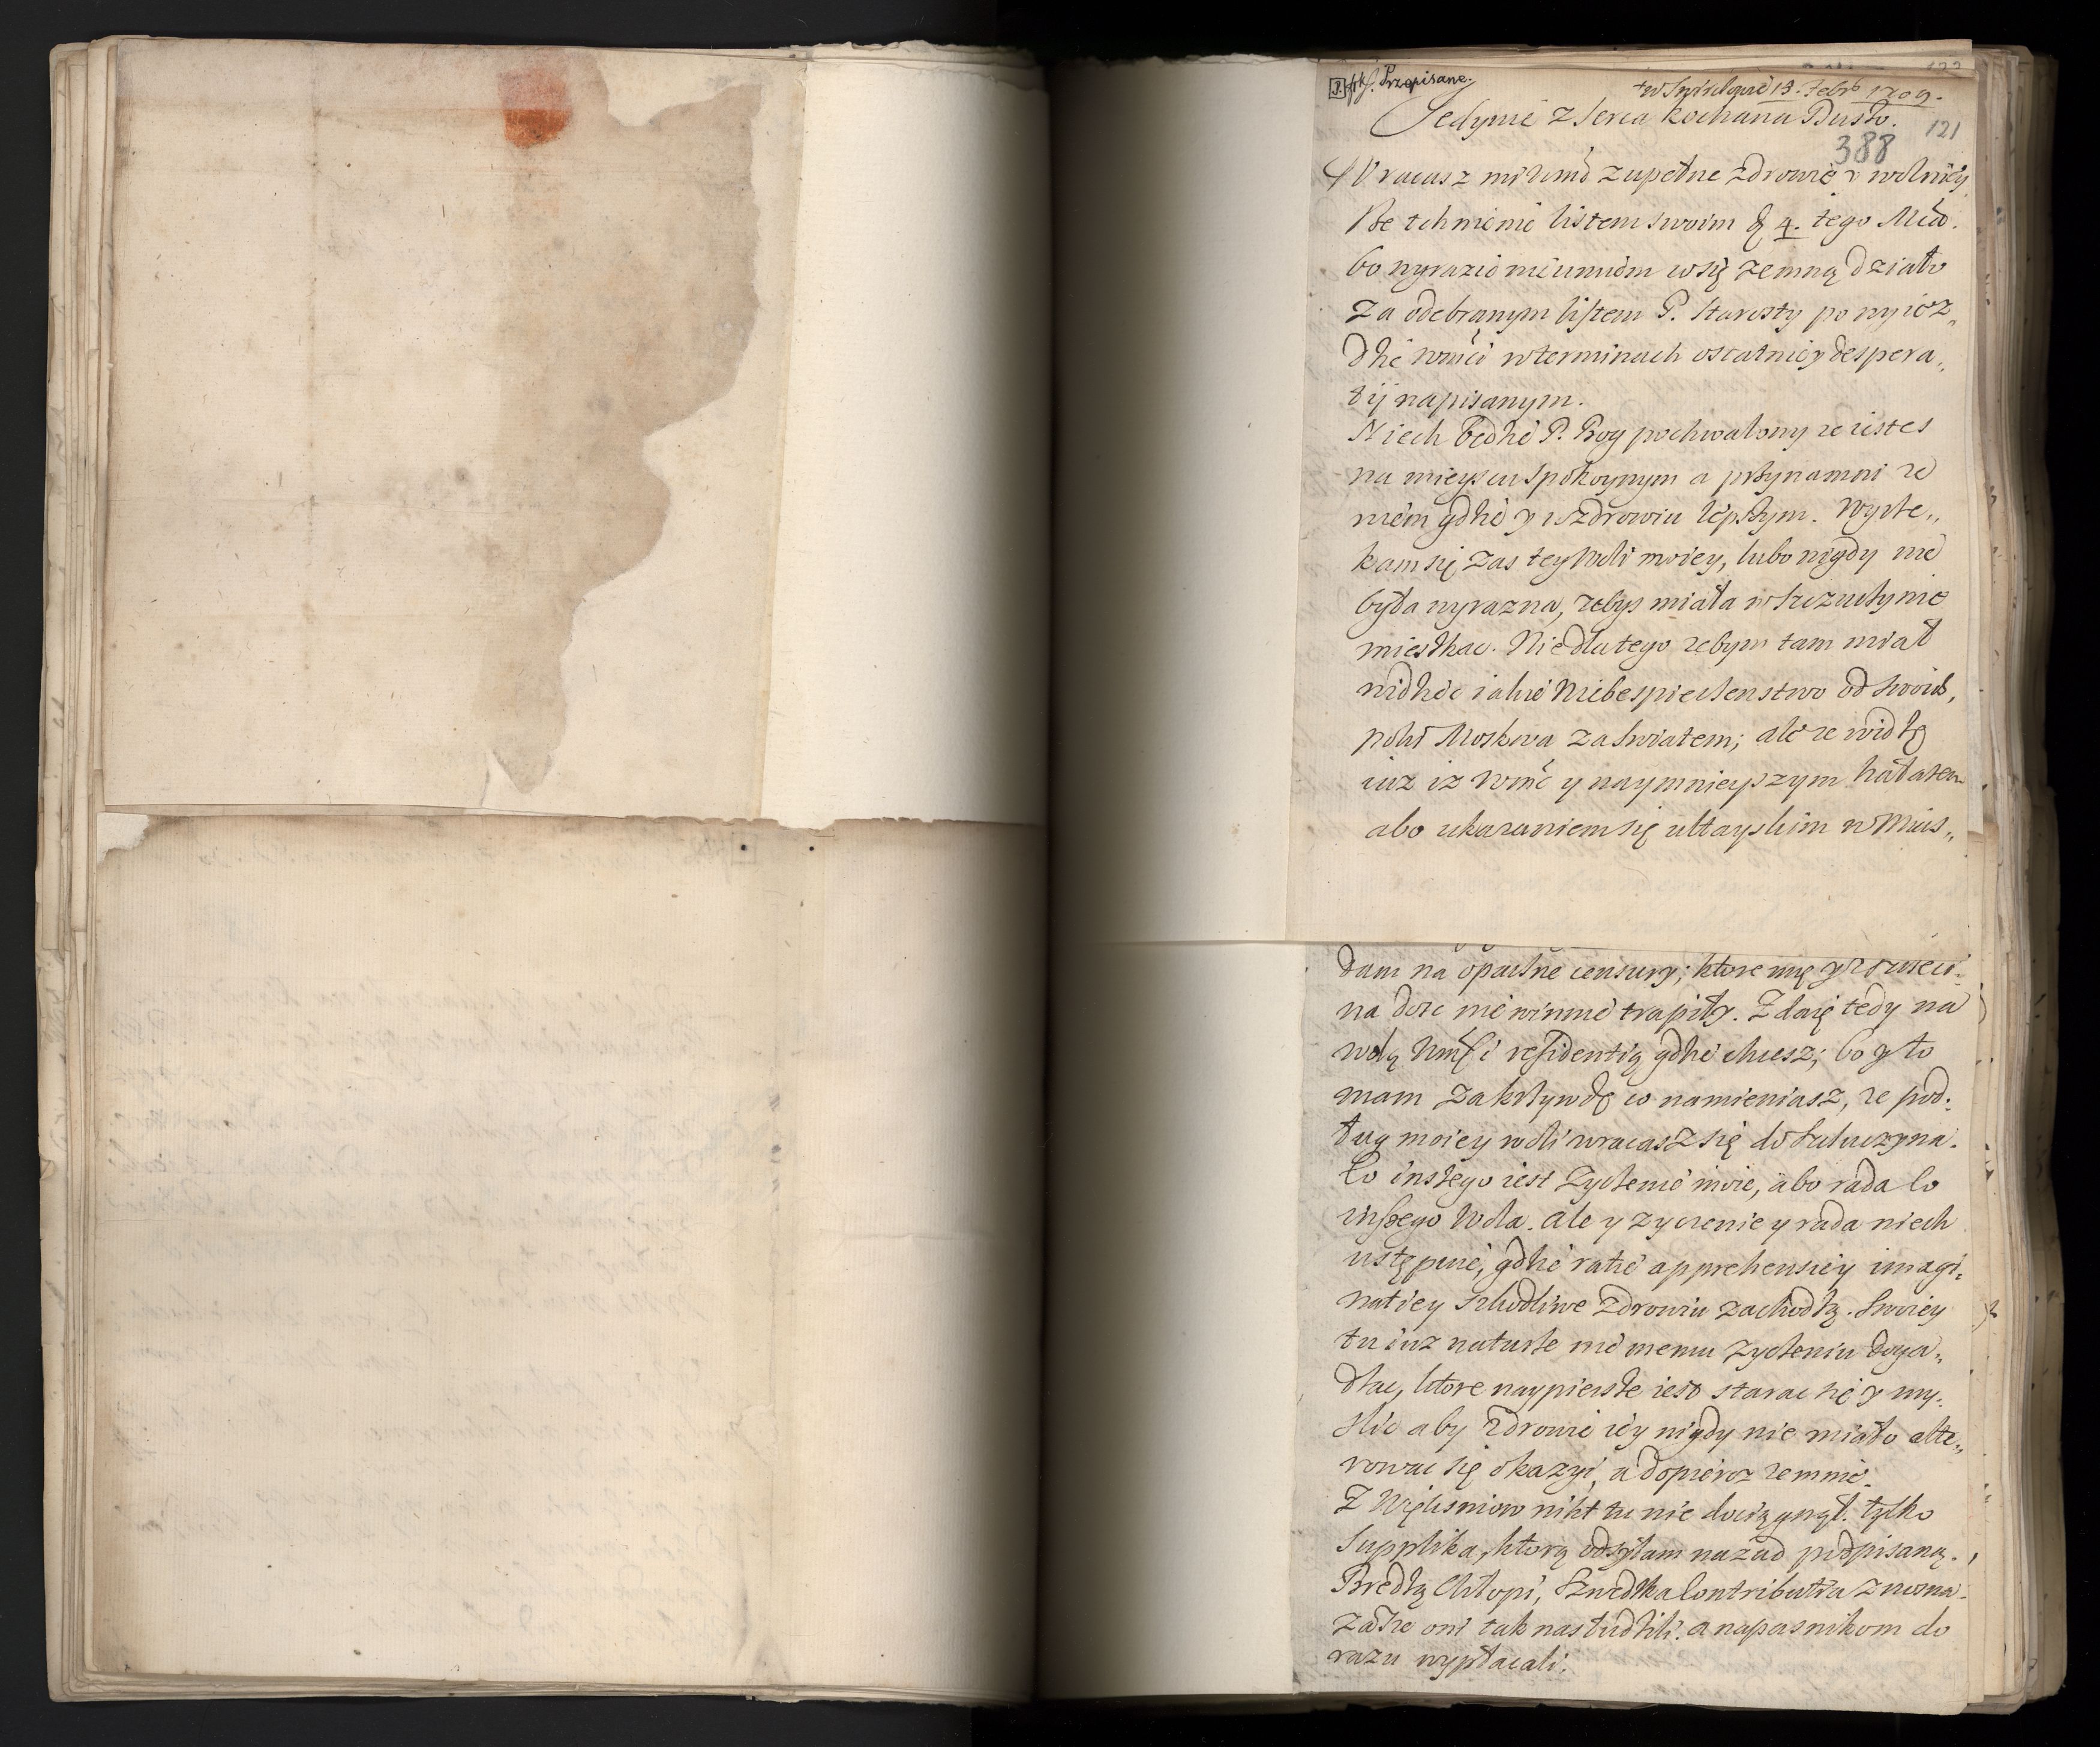 Przepisane.
13. Febr. 1709.
121
Jedynie z serca kochana Dusko.
388
Wracasz mi Wmć zupełne zdrowie y wolnieÿ
tchnienie listem swoim 4. tego
bo wyrazic nie umiem co się zemną działo
za odebranym listem P. Starosty po wyiez„
dzie Wmści w terminach ostatniey despera„
tij napisanym.
Niech będzie P. Bog pochwalony ze iestes
na mieyscu spokoynym a przynamni ze
wiem gdzie y w zdrowiu lepszym. Wyrze„
kam się zas tey woli moiey, lubo nigdy nie
była wyrazna, zebys miała w
mieszkac. Nie dlatego zebym tam miał
widziec iakie niebespieczenstwo od swoich,
poki Moskwa za swiatem; ale ze widzę
iuz iz Wmć y naymnieyszym hałasem
abo ukazaniem się ułtayskim w Mias„
dam na opaczne censury; ktore mię
na dosc niewinnie trapiły. Zdaię tedy na
wolą Wmści residentią gdzie chcesz; bo y to
mam za krzywdę co namieniasz, ze pod:
ług moiey woli wracasz się do
Co inszego iest zyczenie moie, abo rada co
inszego wola. Ale y zyczenie y rada niech
ustępuie, gdzie takie apprehensiey imagi:
natiey szkodliwe zdrowiu zachodzą. Swoiey
tu iuz naturze nie memu zyczeniu doga„
dzac, ktore naypiersze iest starac się y my:
slic aby zdrowie iey nigdy nie miało alte„
rowac się okazyi, a dopieroz zemnie.
Z nikt tu nie dociągnął. tylko
Supplika, ktorą odsyłam nazad podpisaną.
Bredzą Chłopi, Szwedzka Contributia znosna.
zadze oni tak nas łudzili. a napasnikom do
razu wypłacali.